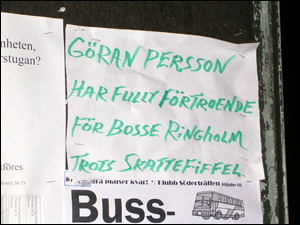 GÖRAN PERSSON
nheten,
rstugan?
HAR FULLT FÖRTROENDE
FÖR BOSSE RINGHOLM
tföres
TROTS SKATTEFIFFEL.
platser kvar! Klubb Söderträffen
Buss-